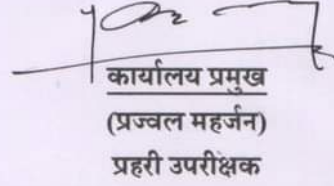 कार्यालय प्रमुख
(प्रज्वल महर्जन)
प्रहरी उपरीक्षक